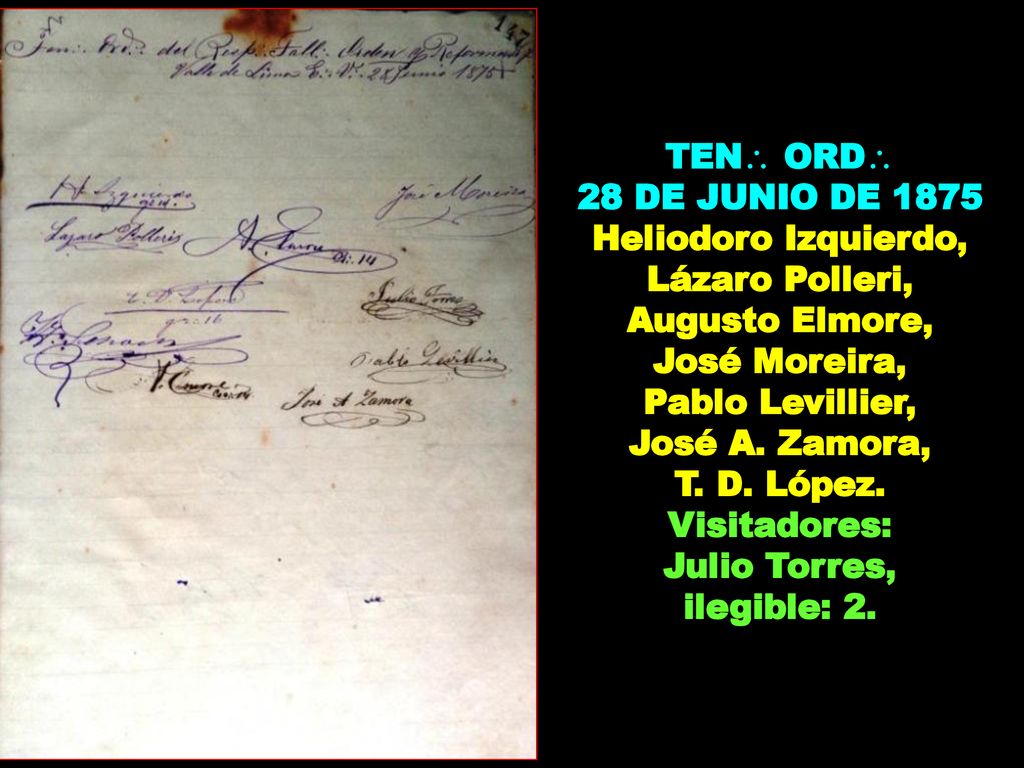 147
Ten∴ Ord∴ del Resp∴ Tall∴ Orden y Reforma
Valle de Lima E∴ V∴ 28 Junio 1875
H Izquierdo
gr∴ 14∴
José Moreira
Lazaro Polleri
A. Elmore
Gr∴ 14
T. D. Lopez
gr∴ 16
Julio Torres
Pablo Levillier
José A Zamora
TEN∴ ORD∴
28 DE JUNIO DE 1875
Heliodoro Izquierdo,
Lázaro Polleri,
Augusto Elmore,
José Moreira,
Pablo Levillier,
José A. Zamora,
T. D. López.
Visitadores:
Julio Torres,
ilegible: 2.